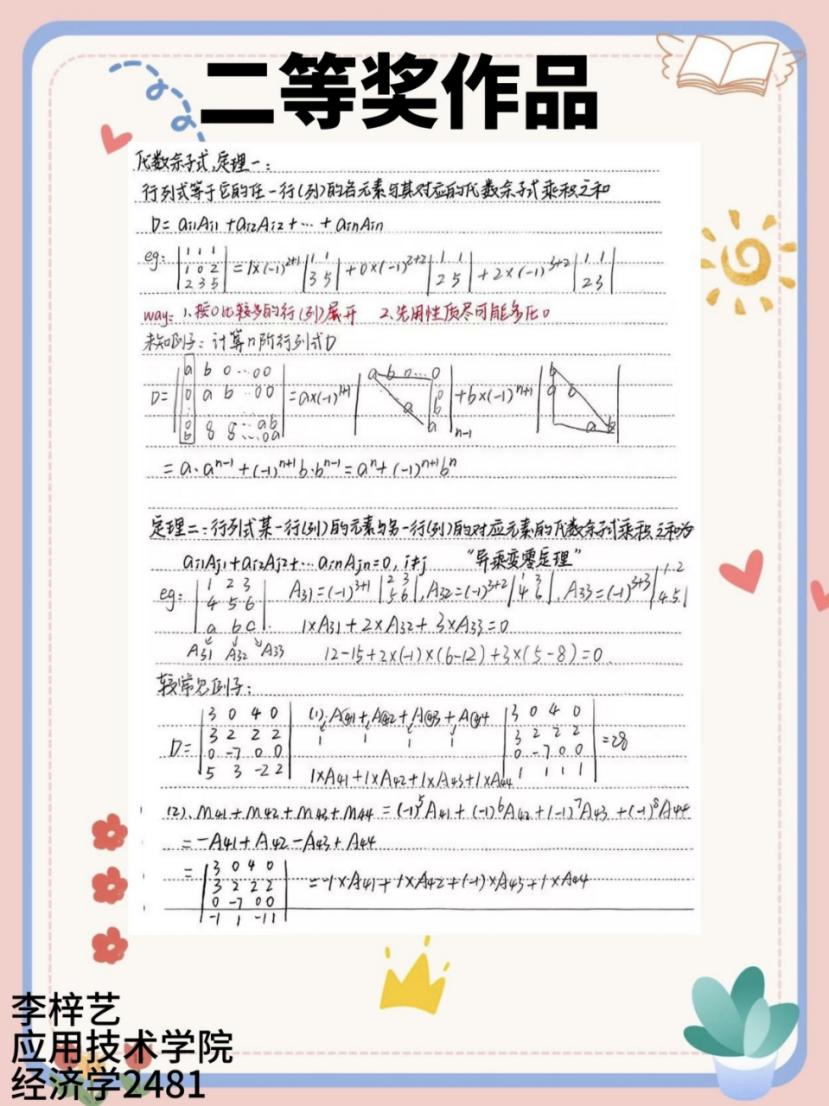 二等奖作品
代数余子式,定理一:
行列式等于它的任一行(列)的各元素与其对应的代数余子式乘积之和
D= ai1Ai1 +ai2Ai2+ … + ainAin
eg: |1 1 1; 1 0 2; 2 3 5| =1×(-1)²⁺¹ |1 1; 3 5| +0×(-1)²⁺² |1 1; 2 5| +2×(-1)³⁺² |1 1; 2 3|
way: 1、按0比较多的行(列)展开 2、先用性质尽可能多化0
例子:计算n阶行列式D
D= |a b 0 … 0 0; 0 a b … 0 0; ⋮; 0 0 0 … a b; b 0 0 … 0 a| =a×(-1)¹⁺¹ |a b 0 … 0; 0; a b; a|n-1 +b×(-1)ⁿ⁺¹ |b; a 0; a b|
= a·aⁿ⁻¹ +(-1)ⁿ⁺¹b·bⁿ⁻¹ = aⁿ+(-1)ⁿ⁺¹bⁿ
定理二:行列式某一行(列)的元素与另一行(列)的对应元素的代数余子式乘积之和为
ai1Aj1+ai2Aj2+…ainAjn=0, i≠j “异乘变零定理”
eg: |1 2 3; 4 5 6; a b c| A31=(-1)³⁺¹ |2 3; 5 6|, A32=(-1)³⁺² |1 3; 4 6|, A33=(-1)³⁺³ |1 2; 4 5|
1×A31+2×A32+3×A33=0
A31 A32 A33 12-15+2×(-1)×(6-12)+3×(5-8)=0
较常见例子:
D= |3 0 4 0; 3 2 2 2; 0 -7 0 0; 5 3 -2 2| (1). A41+A42+A43+A44 |3 0 4 0; 3 2 2 2; 0 -7 0 0; 1 1 1 1| =28
1 1 1 1
1×A41+1×A42+1×A43+1×A44
(2). M41+M42+M43+M44 = (-1)⁵A41+(-1)⁶A42+(-1)⁷A43+(-1)⁸A44
= -A41+A42-A43+A44
= |3 0 4 0; 3 2 2 2; 0 -7 0 0; -1 1 -1 1| =-1×A41+1×A42+(-1)×A43+1×A44
李梓艺
应用技术学院
经济学2481